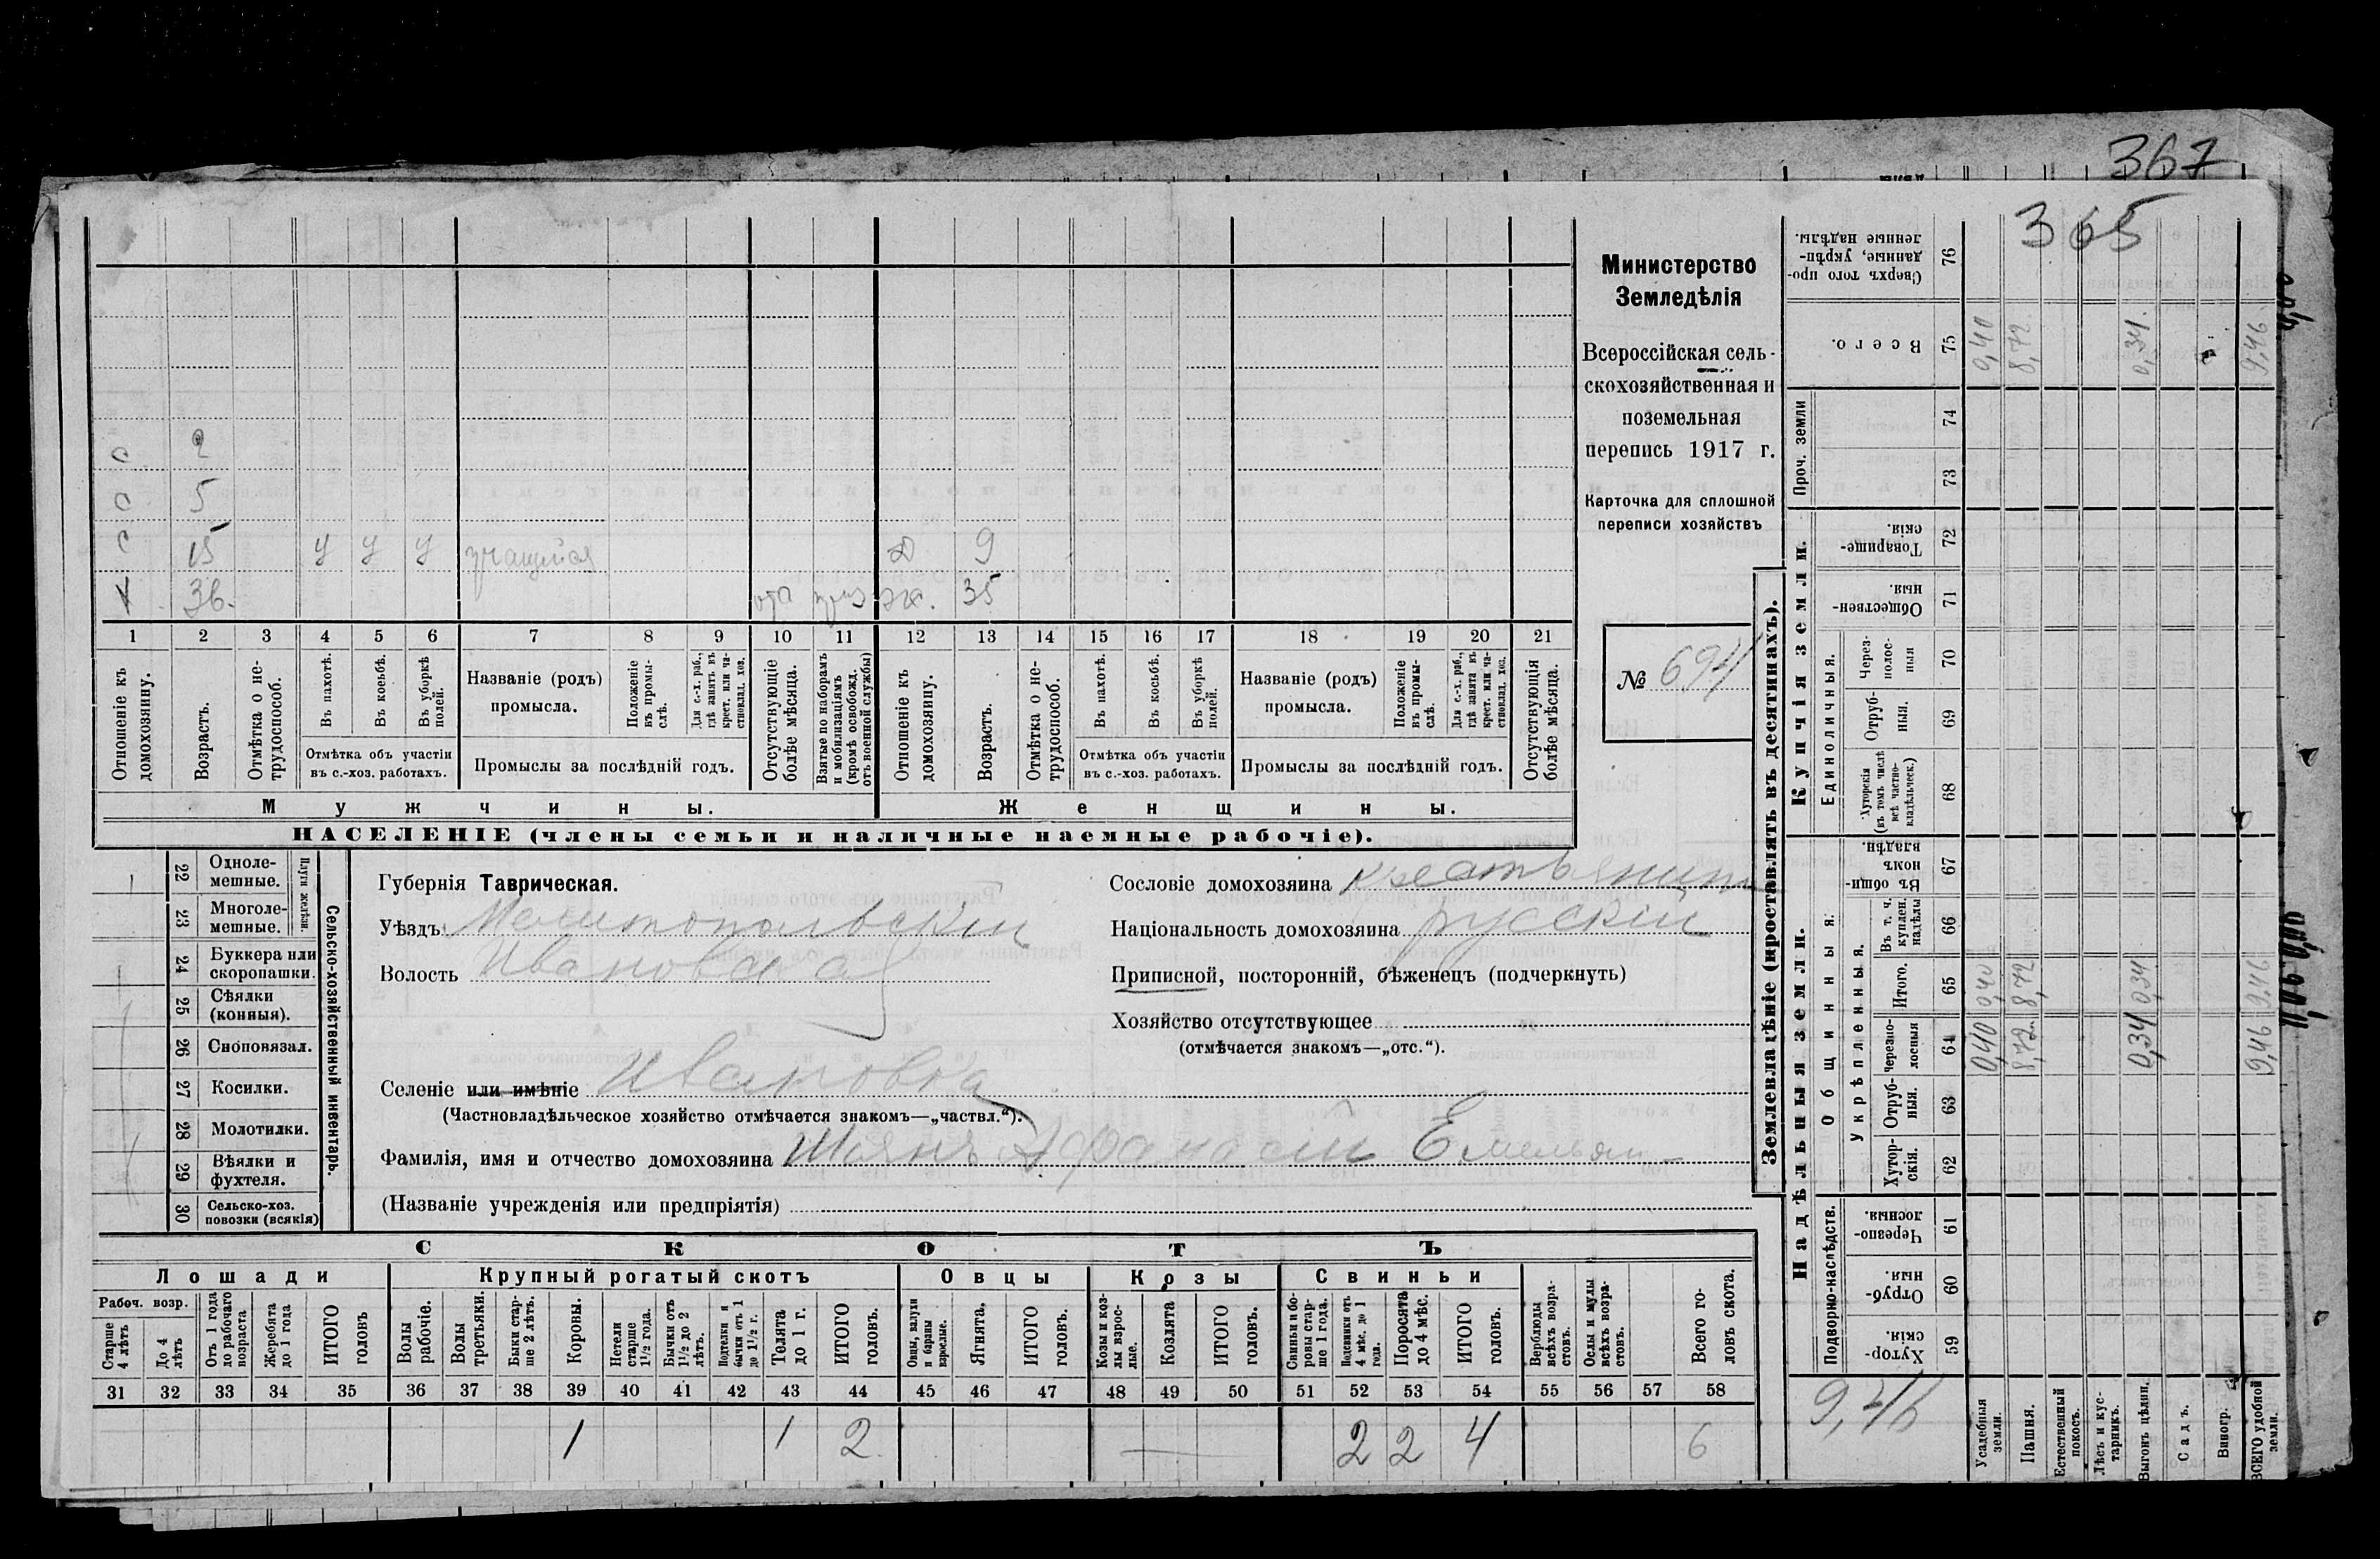 367
365
Министерство
Земледѣлія
Всероссійская сель-
скохозяйственная и
поземельная
перепись 1917 г.
Карточка для сплошной
переписи хозяйствъ
№ 694
с 2
с 5
с 15 у у у учащійся д 9
х 36. отс приз эк. 35
1 2 3 4 5 6 7 8 9 10 11 12 13 14 15 16 17 18 19 20 21
Отношеніе къ домохозяину.
Возрастъ.
Отмѣтка о не-трудоспособ.
Въ пахотѣ.
Въ косьбѣ.
Въ уборкѣ полей.
Отмѣтка объ участіи въ с.-хоз. работахъ.
Названіе (родъ) промысла.
Положеніе въ промы-слѣ.
Для с.-х. раб., гдѣ занятъ въ крест. или ча-стновлад. хоз.
Промыслы за послѣдній годъ.
Отсутствующіе болѣе мѣсяца.
Взятые по наборамъ и мобилизаціямъ (кромѣ освобожд. отъ военной службы)
Отношеніе къ домохозяину.
Возрастъ.
Отмѣтка о не-трудоспособ.
Въ пахотѣ.
Въ косьбѣ.
Въ уборкѣ полей.
Отмѣтка объ участіи въ с.-хоз. работахъ.
Названіе (родъ) промысла.
Положеніе въ промы-слѣ.
Для с.-х. раб., гдѣ занята въ крест. или ча-стновлад. хоз.
Промыслы за послѣдній годъ.
Отсутствующія болѣе мѣсяца.
Мужчины. Женщины.
НАСЕЛЕНІЕ (члены семьи и наличные наемные рабочіе).
22 Одноле-мешные.
23 Многоле-мешные.
Плуги желѣзн.
24 Буккера или скоропашки.
25 Сѣялки (конныя).
26 Сноповязал.
27 Косилки.
28 Молотилки.
29 Вѣялки и фухтеля.
30 Сельско-хоз. повозки (всякія)
Сельско-хозяйственный инвентарь.
Губернія Таврическая.
Уѣздъ Мелитопольскій
Волость Ивановская
Селеніе или имѣніе Ивановка
(Частновладѣльческое хозяйство отмѣчается знакомъ—„частвл.“).
Фамилія, имя и отчество домохозяина Шиянъ Афанасій Емельян-
(Названіе учрежденія или предпріятія)
Сословіе домохозяина крестьянинъ
Національность домохозяина русскій
Приписной, посторонній, бѣженецъ (подчеркнуть)
Хозяйство отсутствующее
(отмѣчается знакомъ—„отс.“).
СКОТЪ
Лошади Крупный рогатый скотъ Овцы Козы Свиньи
Рабоч. возр.
Старше 4 лѣтъ
До 4 лѣтъ
Отъ 1 года до рабочаго возраста
Жеребята до 1 года
ИТОГО головъ
Волы рабочіе.
Волы третьяки.
Быки стар-ше 2 лѣтъ.
Коровы.
Нетели старше 1½ года.
Бычки отъ 1½ до 2 лѣтъ.
Подтелки и бычки отъ 1 до 1½ г.
Телята до 1 г.
ИТОГО головъ.
Овцы, валухи и бараны взрослые.
Ягнята.
ИТОГО головъ.
Козы и коз-лы взрос-лые.
Козлята
ИТОГО головъ.
Свиньи и бо-ровы стар-ше 1 года.
Подсвинки отъ 4 мѣс. до 1 года.
Поросята до 4 мѣс.
ИТОГО головъ.
Верблюды всѣхъ возра-стовъ.
Ослы и мулы всѣхъ возра-стовъ.
Всего го-ловъ скота.
31 32 33 34 35 36 37 38 39 40 41 42 43 44 45 46 47 48 49 50 51 52 53 54 55 56 57 58
1 1 2 2 2 4 6
Землевладѣніе (проставлять въ десятинахъ).
Надѣльныя земли. Купчія земли. Проч. земли
Подворно-наслѣдств. Общинныя. Укрѣпленныя. Единоличныя.
59 Хутор-скія.
60 Отруб-ныя.
61 Черезпо-лосныя.
62 Хутор-скія.
63 Отруб-ныя.
64 Черезпо-лосныя
65 Итого.
66 Въ т. ч. куплен. надѣлы
67 Въ общин-номъ владѣн.
68 Хуторскія (въ томъ числѣ всѣ частно-владѣльческ.)
69 Отруб-ныя.
70 Через-полос-ныя
71 Обществен-ныя.
72 Товарище-скія.
73
74
75 Всего.
76 Сверхъ того про-данные, укрѣп-ленные надѣлы.
9,46
Усадебныя земли. 0,40 0,40 0,40
Пашня. 8,72 8,72 8,72
Естественный покосъ.
Лѣсъ и кус-тарникъ.
Выгонъ цѣлин. 0,34 0,34 0,34.
Садъ.
Виногр.
ВСЕГО удобной земли. 9,46 9,46 9,46.